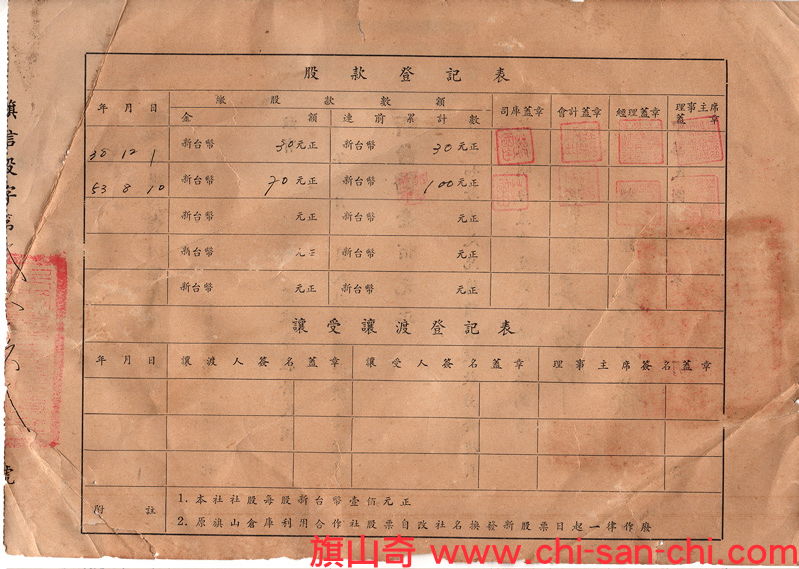 股款登記表
年月日 繳股款數額 司庫蓋章 會計蓋章 經理蓋章 理事主席蓋章
金額 連前累計數
38 12 1 新台幣 30元正 新台幣 30元正
53 8 10 新台幣 70元正 新台幣 100元正
新台幣 元正 新台幣 元正
新台幣 元正 新台幣 元正
新台幣 元正 新台幣 元正
讓受讓渡登記表
年月日 讓渡人簽名蓋章 讓受人簽名蓋章 理事主席簽名蓋章
附註
1. 本社社股每股新台幣壹佰元正
2. 原旗山倉庫利用合作社股票自改社名換發新股票日起一律作廢
旗信股字第
號
旗山奇 www.chi-san-chi.com